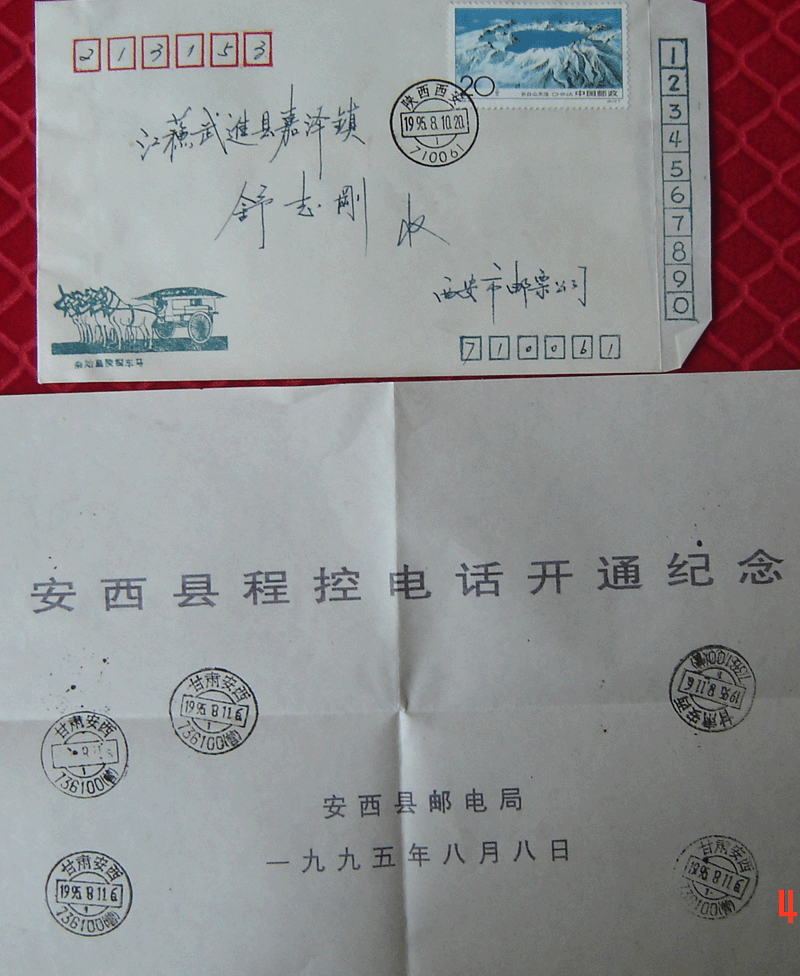 213153
20
中国邮政
陕西西安
1995.8.10.20
1
710061
江蘇武進县嘉泽鎮
舒志剛 收
西安市邮票公司
710061
秦始皇陵铜车马
1
2
3
4
5
6
7
8
9
0
安西县程控电话开通纪念
甘肃安西
1995.8.11.6
1
736100(营)
甘肃安西
1
736100(营)
甘肃安西
1995.8.11.6
736100(营)
安西县邮电局
一九九五年八月八日
甘肃安西
1995.8.11.6
1
736100(营)
甘肃安西
1995.8.11.6
1
736100(营)
4